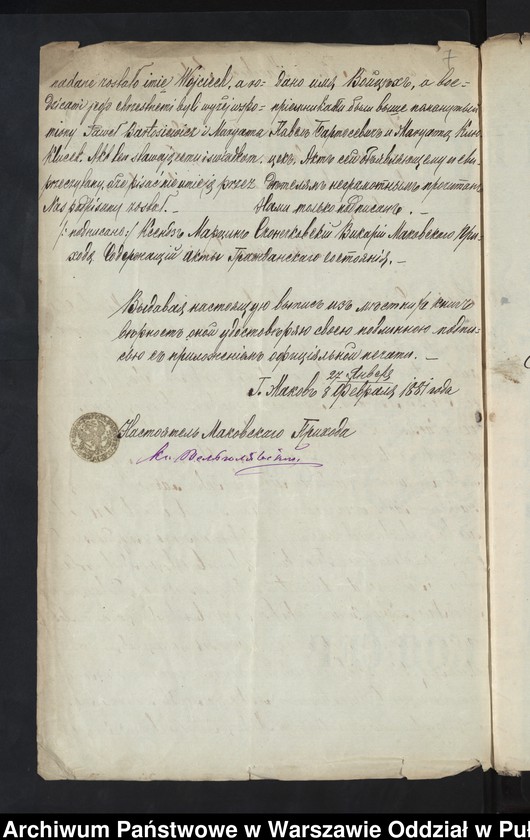 7
nadane zostało imię Wojciech, a ro-
dzicami jego chrzestnemi byli wyżej wspo-
mniony Paweł Bartosiewicz i Maryanna
Kluczek. Akt ten stawającemu i świadkom
przeczytany, ale pisać nieumieją przez
Nas podpisany został. –
дано имя Войцѣхъ, а вос-
пріемниками были выше помянутый
Павелъ Бартосевичъ и Маріанна Клю-
чекъ. Актъ сей объявляющему и сви-
дѣтелямъ неграмотнымъ прочитанъ
Нами только подписанъ. –
/: подписано:/ Ксендзъ Мартинъ Викарій Маковскаго При-
хода Содержащій акты Гражданскаго состоянія. –
Выдавая настоящую выпись изъ книгъ
вѣрность оной удостовѣряю своею подлинною подпи-
сью съ приложеніемъ оффиціальной печати. –
Г. Маковъ 27 Января / 8 Февраля 1881 года
Настоятель Маковскаго Прихода
Кс.
Archiwum Państwowe w Warszawie Oddział w Pu